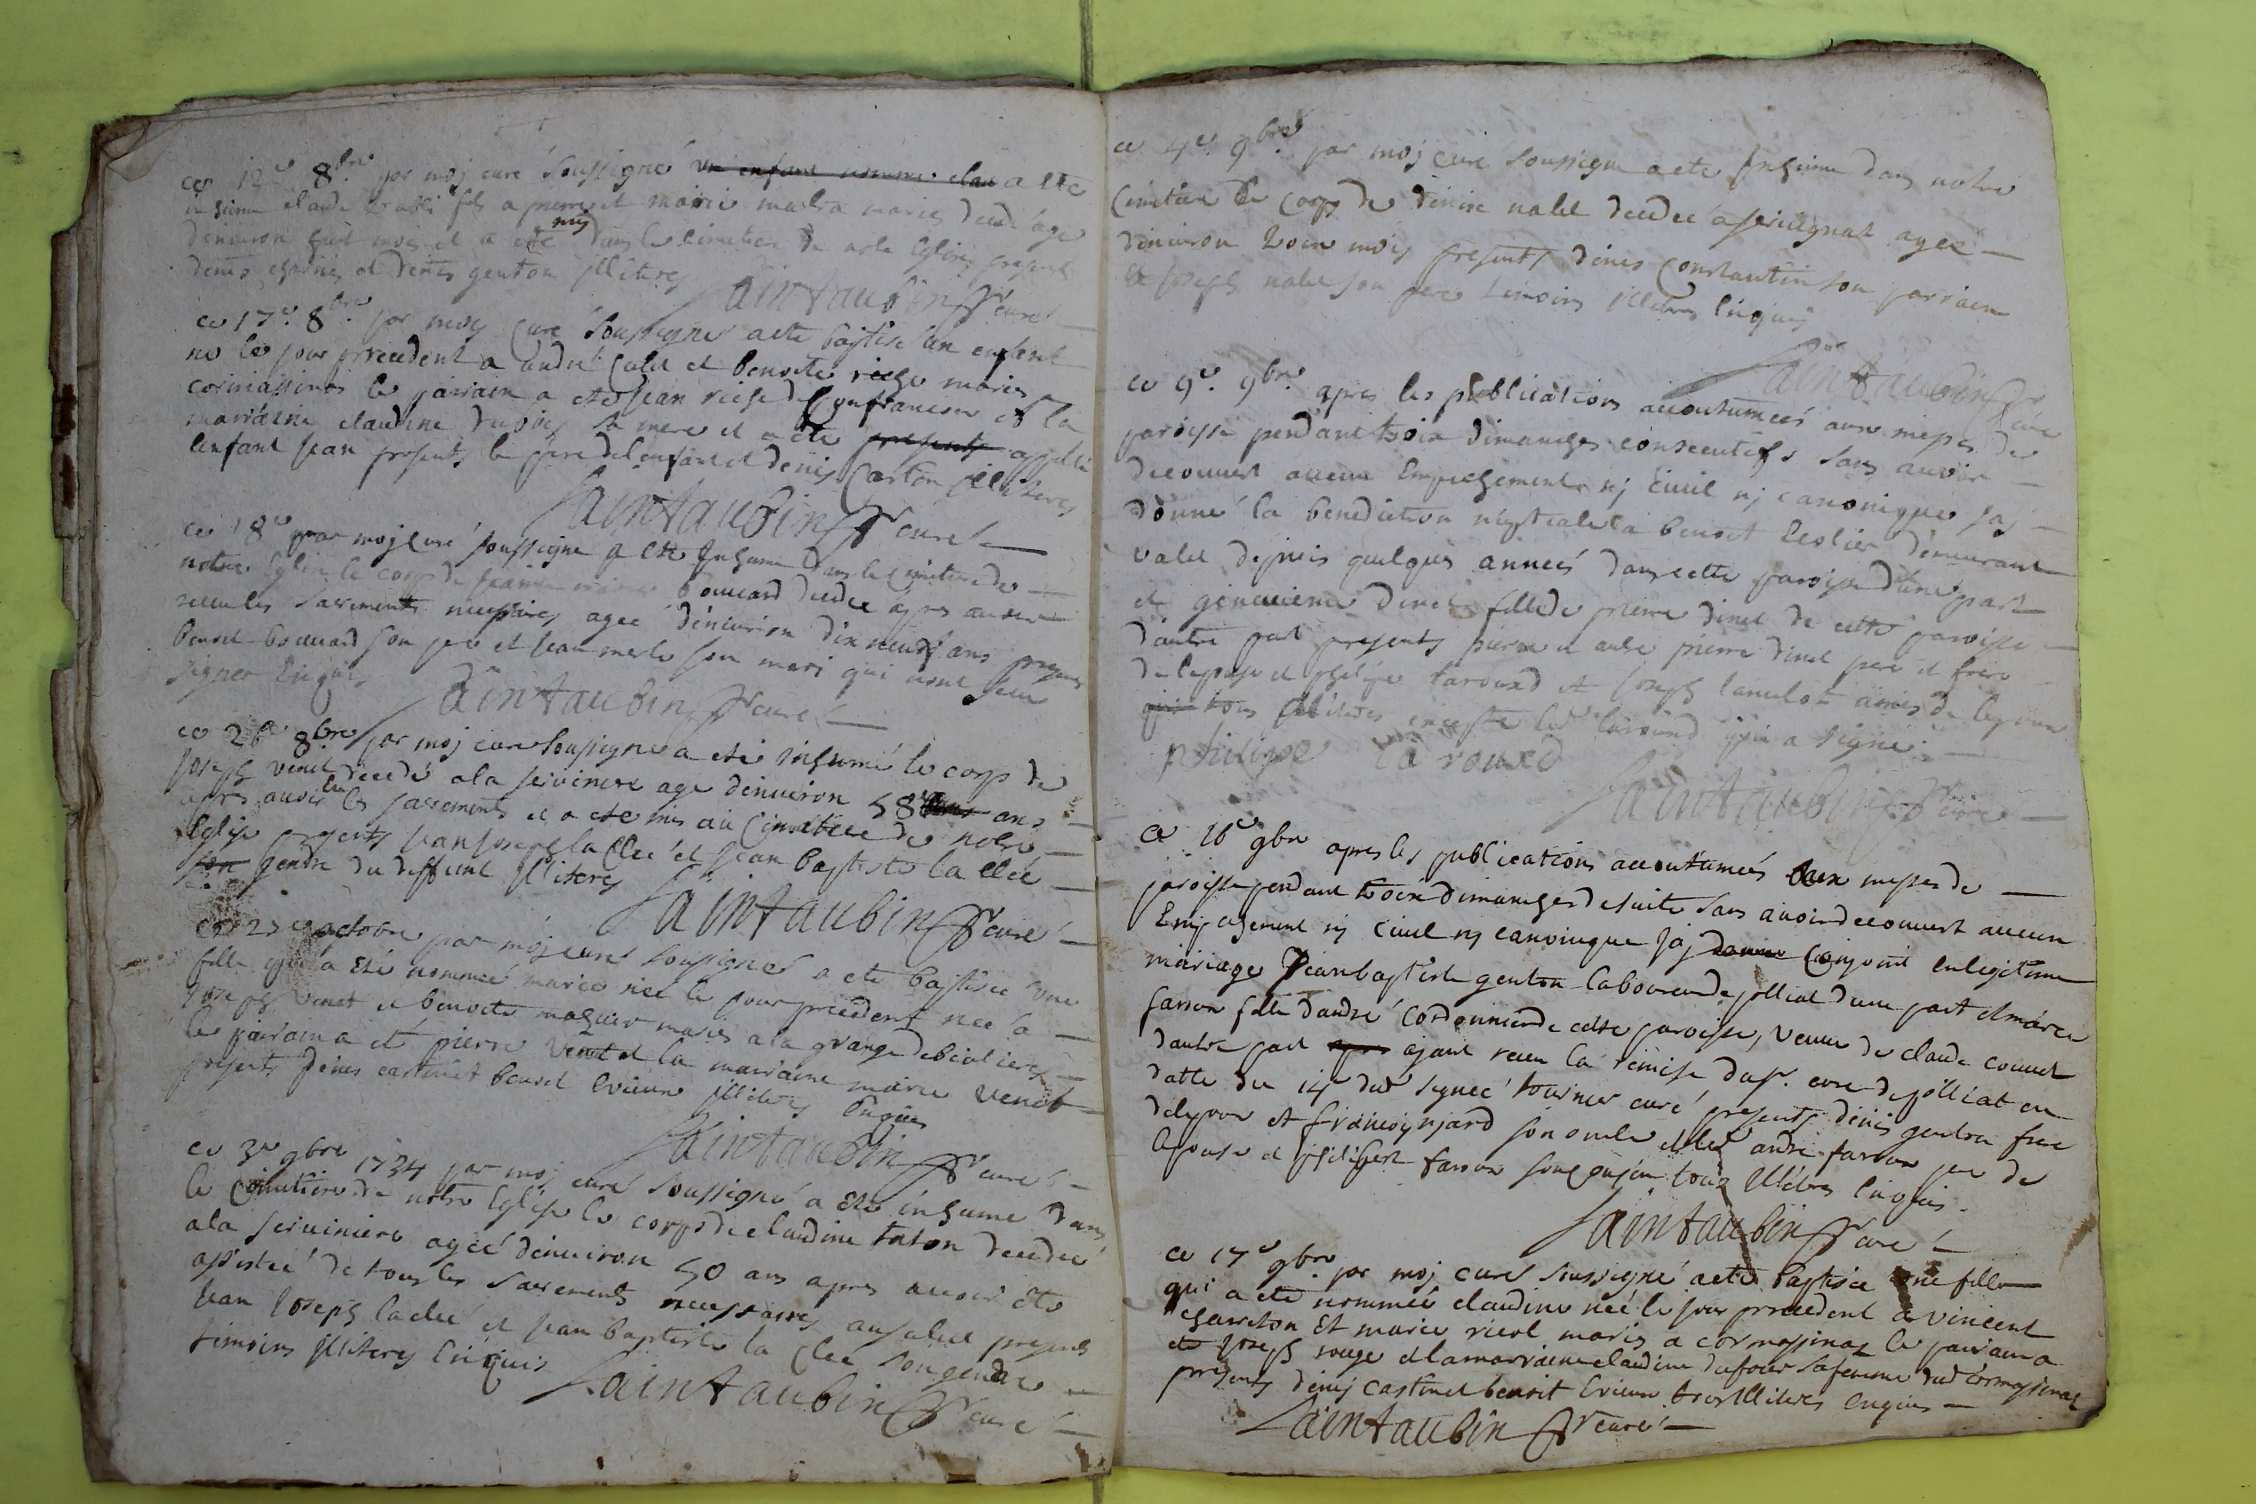 ce 12e 8bre par moj curé soussigné un enfant nommé clau a ete
inhumé claude fils a pierre et marie mariés decedé agé
denviron huit mois et a ete mis dans le cimetiere de notre Eglise presents
denis et denis genton illiteres
Saintaubin Sr curé
ce 17e 8bre par moj curé soussigné a ete baptisé un enfant
né le jour precedent a andré calet et benoite riche mariés
cormassinas le parrain a eté jean riche de Confrancon et la
marraine claudine dupois sa mere et a ete presents appellé
lenfant jean presents le pere de lenfant et denis Carton illiteres
Saintaubin Sr curé
ce 18e par moj curé soussigné a ete Inhumé dans le Cimetiere de
notre Eglise le corps de jeanne marie bouvard decedee apres avoir
receu les sacrements necessaires agée denviron dix neuf ans presents
benoit bouvard son pere et jean merle son mari qui nont sceu
signer Enquis
Saintaubin Sr curé
ce 26e 8bre par moj curé soussigné a eté inhumé le corps de
joseph venet decedé a la serviniere agé denviron 58 ans
apres avoir les sacrements et a ete mis au Cimetiere de notre
Eglise presents jean joseph la Clee et jean baptiste la clée
son gendre du deffunt illiteres
Saintaubin Sr curé
ce 27e octobre par moj curé soussigné a ete baptisee une
fille qui a Eté nommée marie née le jour precedent née a
joseph venet et benoite maguier mariés a la grange debiolieres
le parrain a eté pierre venet et la marraine marie venet
presents denis castinet benoit Evieux illiteres Enquis
Saintaubin Sr curé
ce 3e 9bre 1734 par moj curé soussigné a Eté inhumé dans
le Cimetiere de notre Eglise le corps de claudine triton decedée
a la serviniere agée denviron 50 ans apres avoir ete
assistée de tous les sacrements necessaires au salut presents
jean joseph laclee et jean baptiste la Clee son gendre
temoins illiteres Enquis
Saintaubin Sr curé
ce 4e 9bre par moj curé soussigné a ete Inhumé dans notre
Cimetiere le Corps de denise nalet decedee a serviignat agee
denviron trois mois presents denis Constantin son parrain
et joseph nalet son pere temoins illiteres Enquis
Saintaubin Sr curé
ce 9e 9bre apres les publications accoutumées aux messes de
paroisse pendant trois dimanches consecutifs sans avoir
decouvert aucun Empechement nj civil nj canonique jaj
donné la benediction nuptiale a benoit Ecolier demeurant
valet depuis quelques années dans cette paroisse dune part
et genevieve dinet fille de pierre dinet de cette paroisse
dautre part presents pierre et autre pierre dinet pere et frere
de lepouse et philipe laroud et joseph lancelot amis de lepoux
qui tous illiteres excepté led laround qui a signé
philippe la roued
Saintaubin Sr curé
ce 16e 9bre apres les publications accoutumées aux messes de
paroisse pendant trois dimanches de suite sans avoir decouvert aucun
Empechement nj civil nj canonique jaj donné Conjoint en legitime
mariage jean baptiste genton laboureur de polliat dune part et marie
farson fille dandré cordonnier de cette paroisse, veuve de claude couvet
dautre part apres ajant receu la remise du sr. curé de polliat en
datte du 14e dud signée tournier curé presents denis genton frere
de lepoux et francois njard son oncle et led andre farson pere de
lepouse et philibert farson son cousin tous illiteres Enquis.
Saintaubin Sr curé
ce 17e 9bre par moj curé soussigné a ete baptisée une fille
qui a eté nommée claudine née le jour precedent a vincent
charreton Et marie ricol mariés a cormassinas le parrain a
ete joseph rouge et la marraine claudine dufour sa femme dud cormassinas
presents denis castinet benoit Evieux tous illiteres enquis
Saintaubin Sr curé